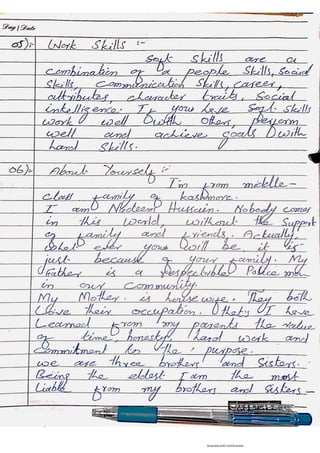 Day / Date
05):- Work Skills :-
Soft Skills are a
combination of a people Skills, Social
Skills, Communication Skills, career,
attributes, character traits, Social
intelligence. If you have Soft Skills
work well with others, perform
well and achieve goals with
hard skills.
06):- About Yourself :-
I'm from middle-
class family of
I am Nadeem Hussain. Nobody comes
in this world, without the Support
of family and friends. Actually,
what ever you will be, it is
just because of your family. My
Father is a respectable Police man
in our Community.
My Mother is house wife. They both
Love their occupation. that's I have
Learned from my parents the value
of time, honesty, hard work and
Commitment to the purpose.
we are three brothers and Sisters.
Being the eldest I am the most
Liable from my brothers and Sisters -
Scanned with CamScanner